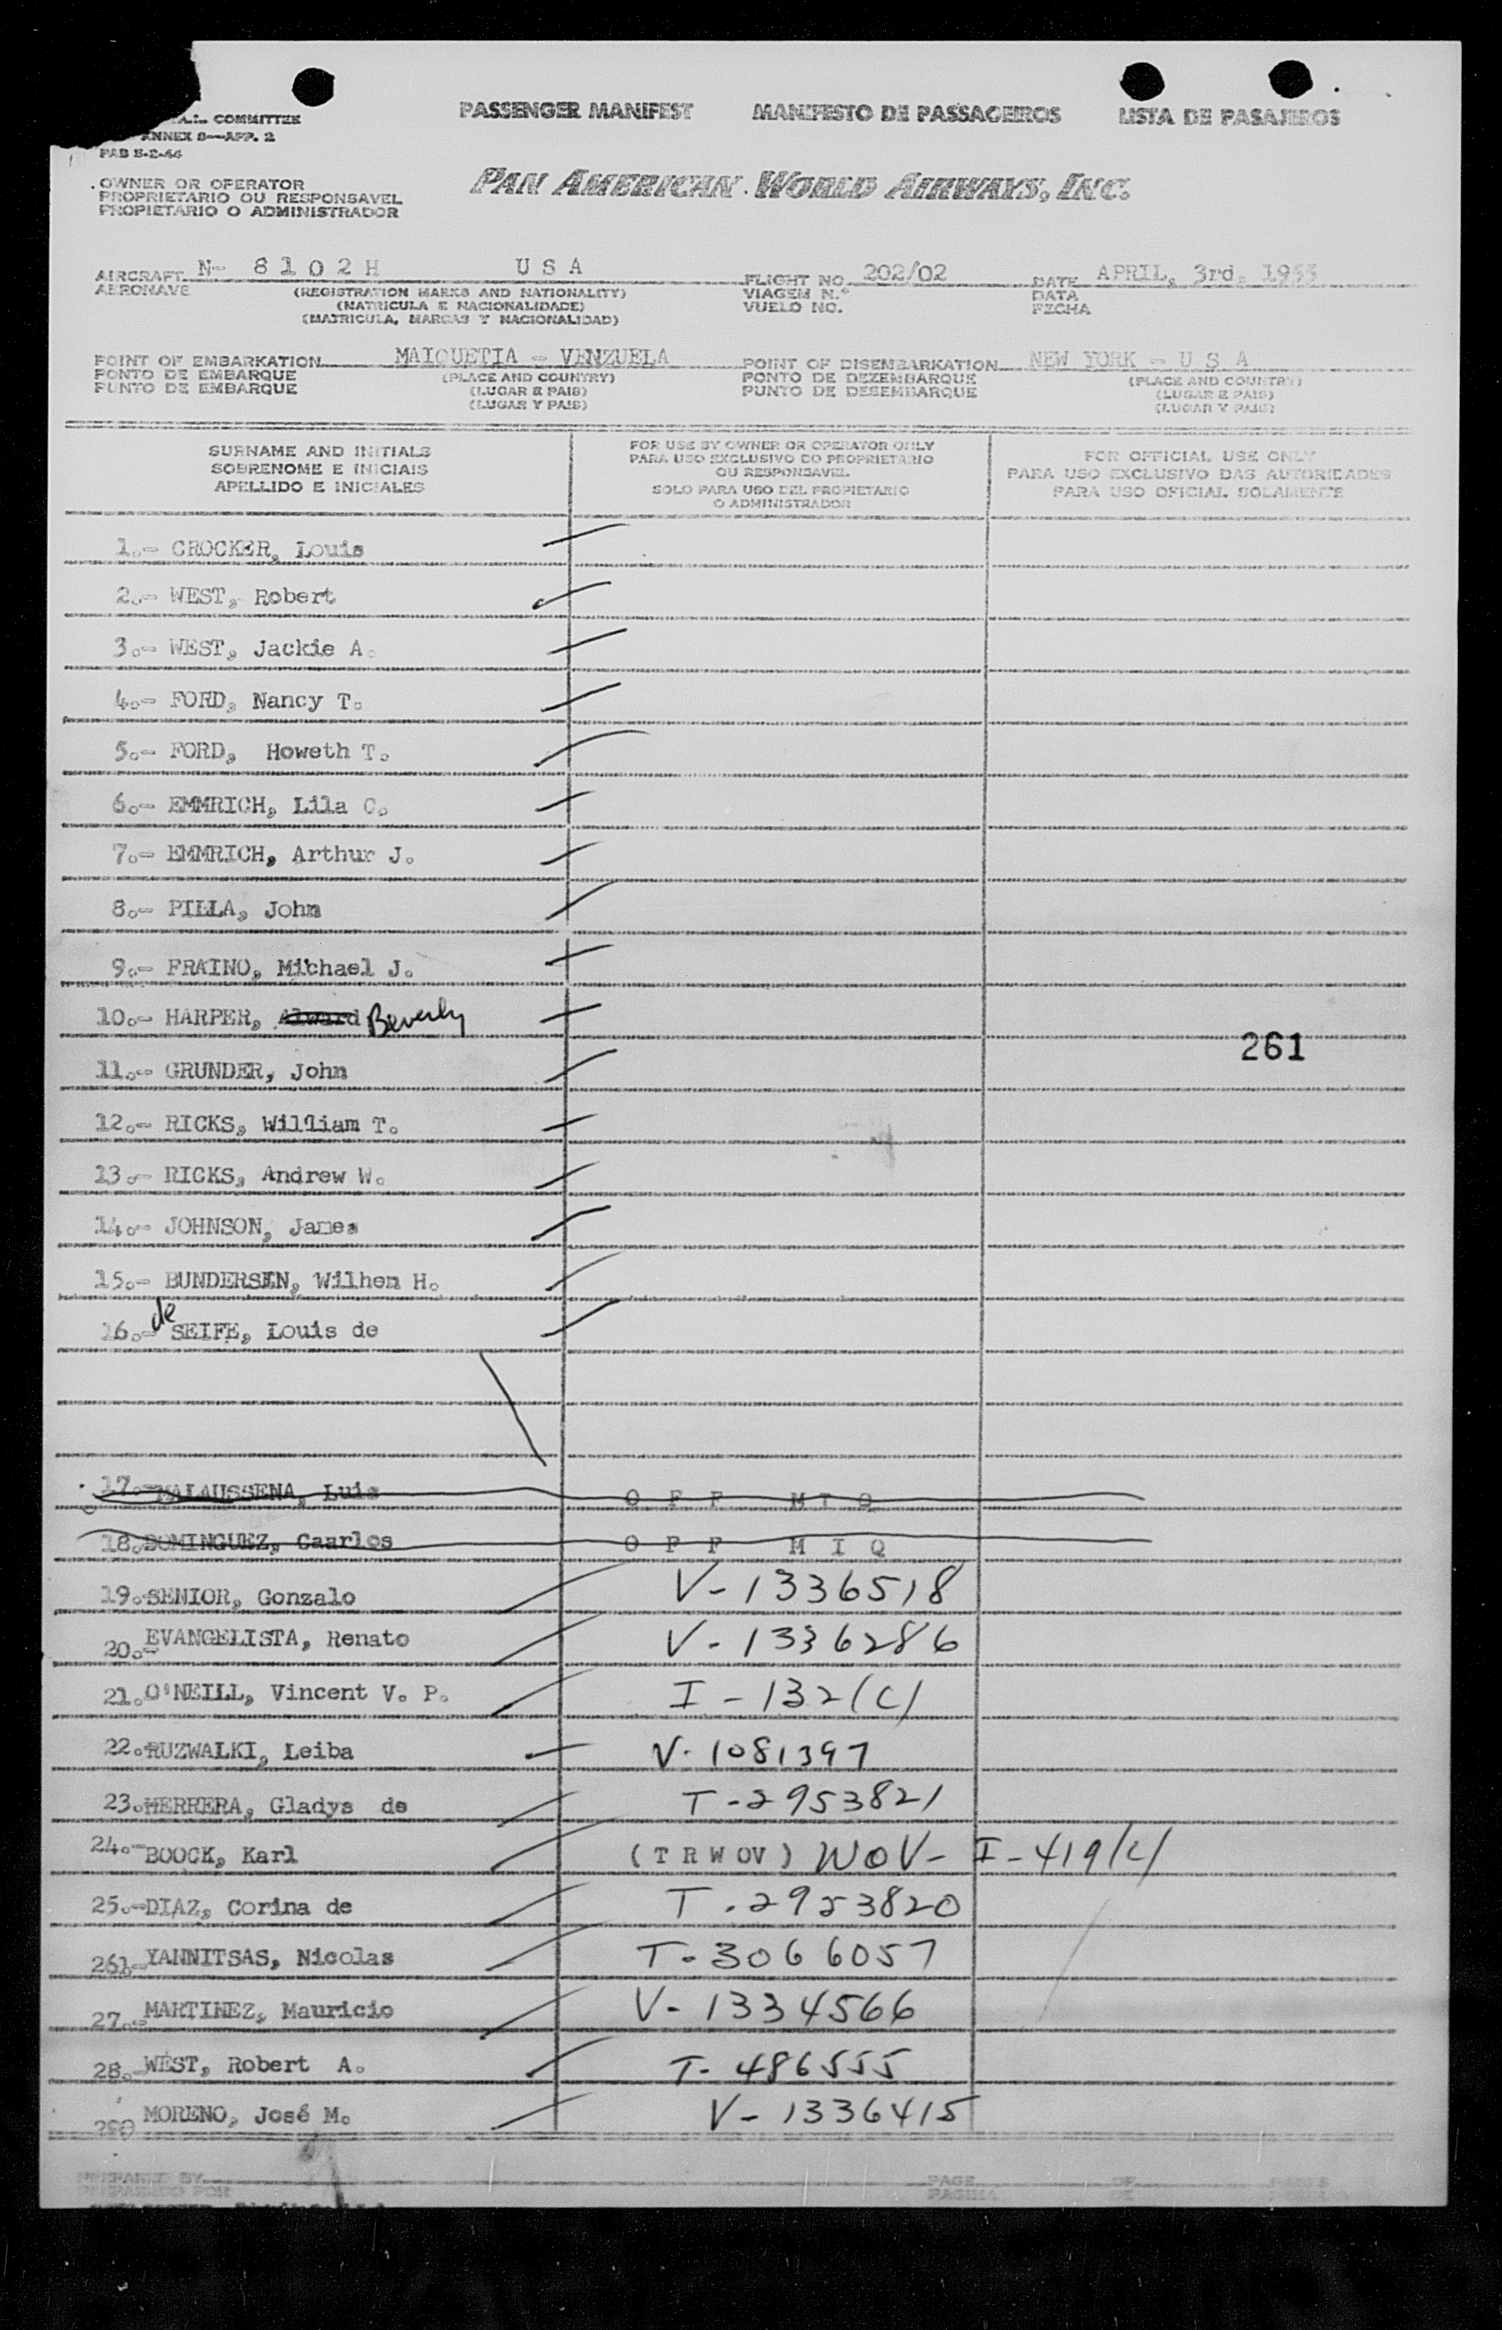 PASSENGER MANIFEST MANIFESTO DE PASSAGEIROS LISTA DE PASAJEROS
COMMITTEE
ANNEX 8—APP. 2
PAB 5-2-44
OWNER OR OPERATOR
PROPRIETARIO OU RESPONSAVEL
PROPIETARIO O ADMINISTRADOR
PAN AMERICAN WORLD AIRWAYS, INC.
AIRCRAFT N- 8102H U S A FLIGHT NO. 202/02 DATE APRIL, 3rd. 1955
AERONAVE (REGISTRATION MARKS AND NATIONALITY) VIAGEM N.° DATA
(MATRICULA E NACIONALIDADE) VUELO NO. FECHA
(MATRICULA, MARCAS Y NACIONALIDAD)
POINT OF EMBARKATION MAIQUETIA - VENZUELA POINT OF DISEMBARKATION NEW YORK - U S A
PONTO DE EMBARQUE (PLACE AND COUNTRY) PONTO DE DEZEMBARQUE (PLACE AND COUNTRY)
PUNTO DE EMBARQUE (LUGAR E PAIS) PUNTO DE DESEMBARQUE (LUGAR E PAIS)
(LUGAR Y PAIS) (LUGAR Y PAIS)
SURNAME AND INITIALS
SOBRENOME E INICIAIS
APELLIDO E INICIALES
FOR USE BY OWNER OR OPERATOR ONLY
PARA USO EXCLUSIVO DO PROPRIETARIO
OU RESPONSAVEL
SOLO PARA USO DEL PROPIETARIO
O ADMINISTRADOR
FOR OFFICIAL USE ONLY
PARA USO EXCLUSIVO DAS AUTORIDADES
PARA USO OFICIAL SOLAMENTE
1.- CROCKER, Louis
2.- WEST, Robert
3.- WEST, Jackie A.
4.- FORD, Nancy T.
5.- FORD, Howeth T.
6.- EMMRICH, Lila C.
7.- EMMRICH, Arthur J.
8.- PILLA, John
9.- FRAINO, Michael J.
10.- HARPER, Beverly
261
11.- GRUNDER, John
12.- RICKS, William T.
13.- RICKS, Andrew W.
14.- JOHNSON, James
15.- BUNDERSEN, Wilhem H.
16.- de SEIFE, Louis de
17.- MALAUSSENA, Luis O F F M I Q
18. DOMINGUEZ, Caarlos O F F M I Q
19. SENIOR, Gonzalo V-1336518
20.- EVANGELISTA, Renato V-1336286
21. O'NEILL, Vincent V. P. I-132(C)
22. RUZWALKI, Leiba V-1081397
23. HERRERA, Gladys de T-2953821
24.- BOOCK, Karl (T R W OV) WOV- I-419(C)
25.- DIAZ, Corina de T-2953820
26.- YANNITSAS, Nicolas T-3066057
27.- MARTINEZ, Mauricio V-1334566
28.- WEST, Robert A. T-486555
29. MORENO, José M. V-1336415
PREPARED BY PAGE OF
PREPARADO POR PAGINA DE